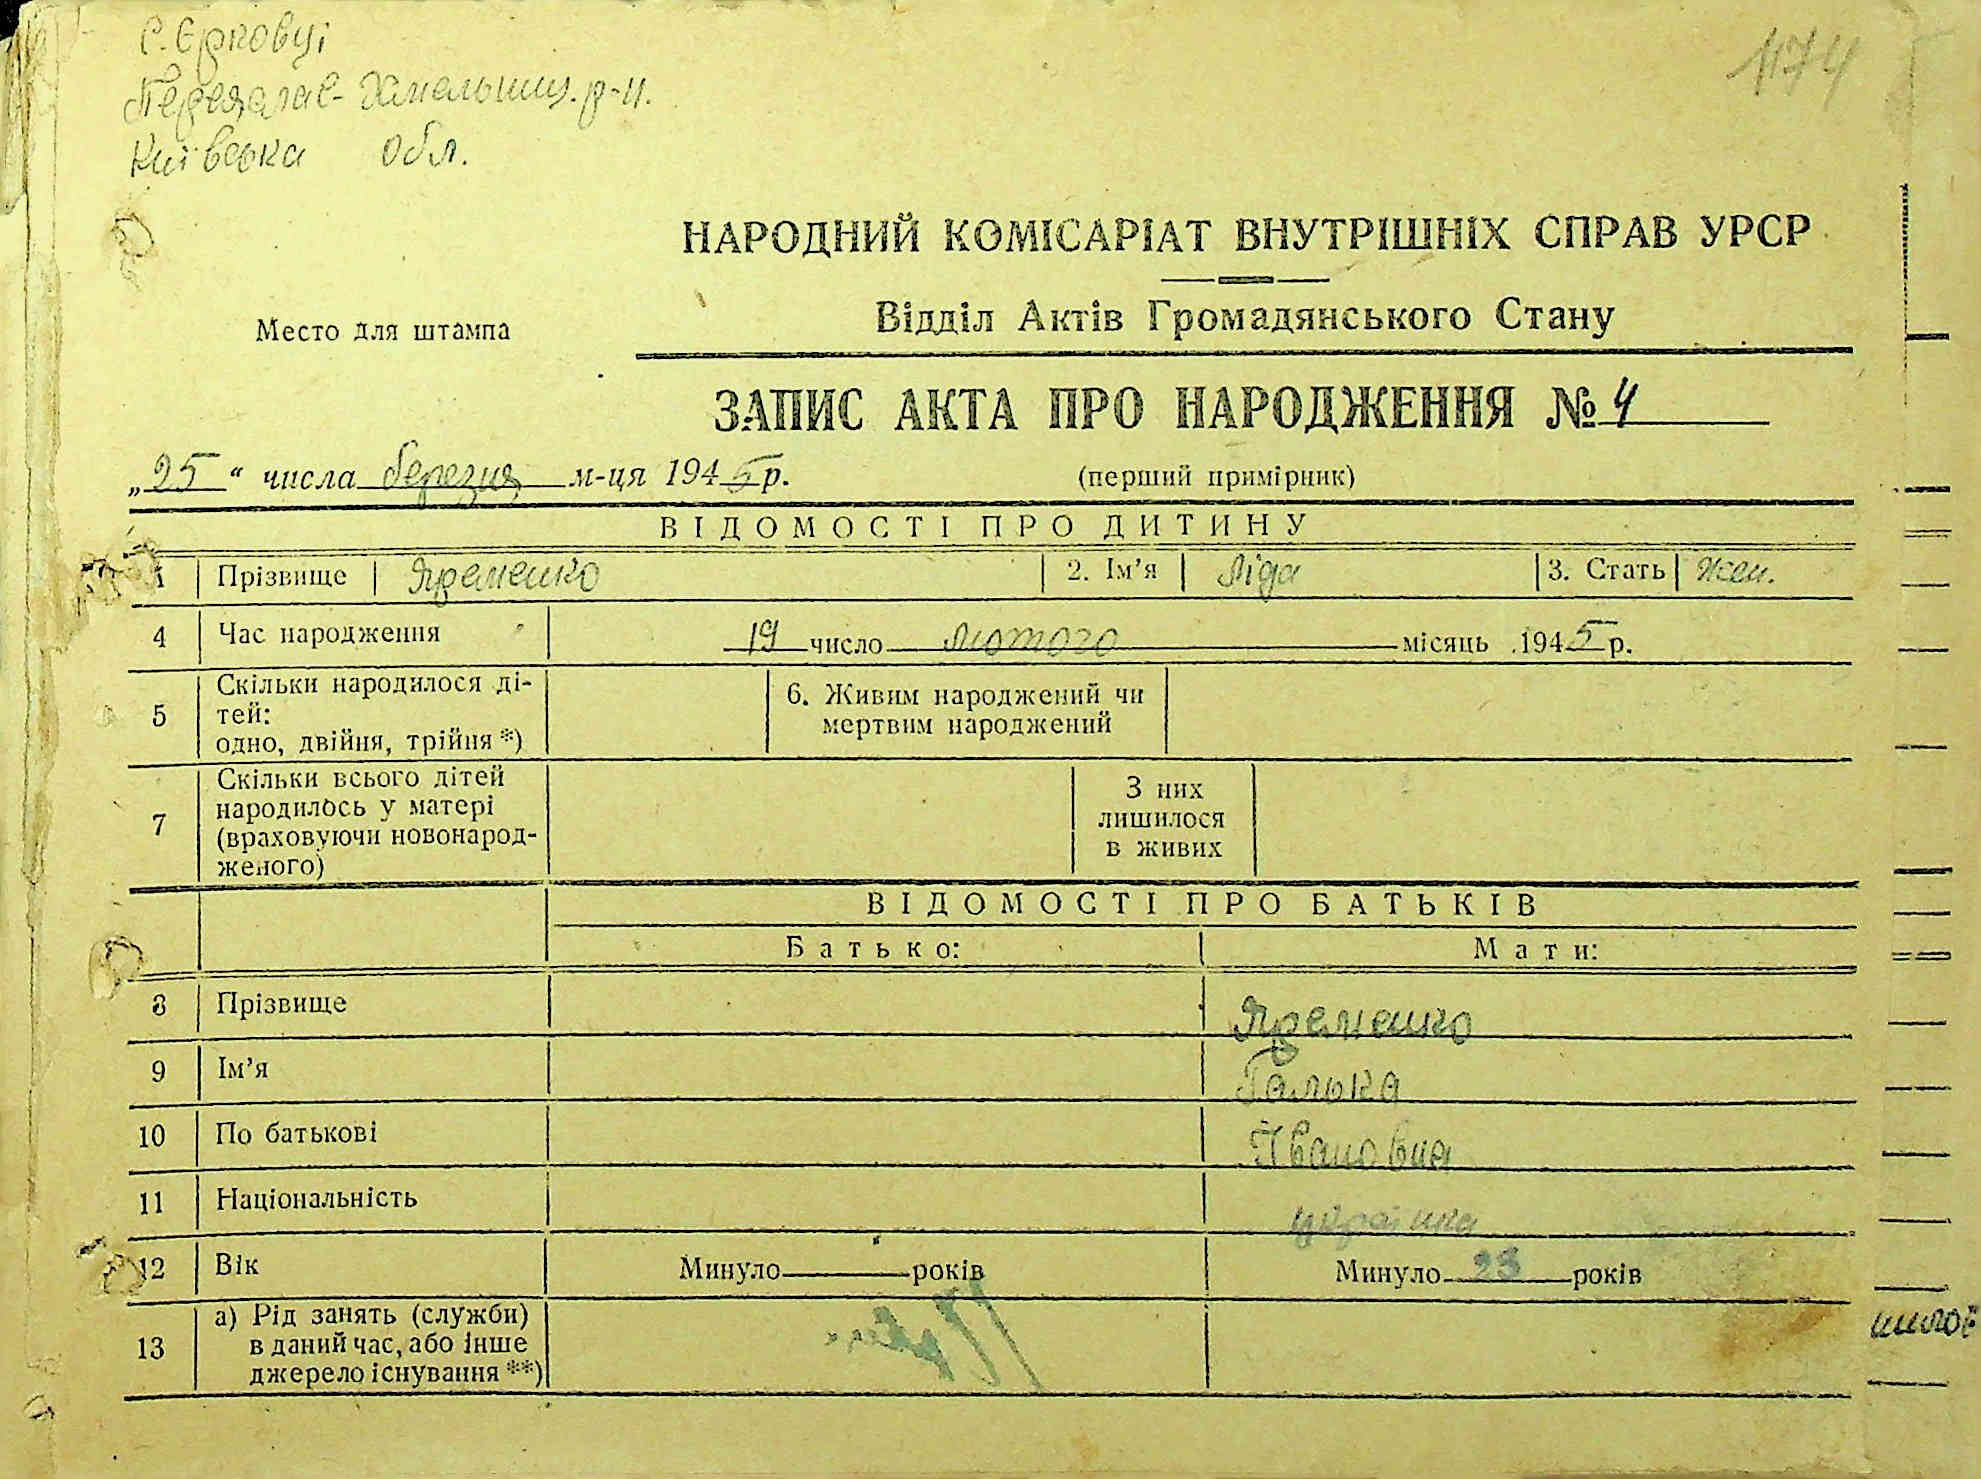 с. Єрковці
Переяслав-Хмельниц. р-н.
Київська обл.
1174
НАРОДНИЙ КОМІСАРІАТ ВНУТРІШНІХ СПРАВ УРСР
Место для штампа
Відділ Актів Громадянського Стану
ЗАПИС АКТА ПРО НАРОДЖЕННЯ № 4
„25“ числа березня м-ця 1945 р.
(перший примірник)
ВІДОМОСТІ ПРО ДИТИНУ
1 Прізвище Яременко 2. Ім’я Ліда 3. Стать жен.
4 Час народження 19 число лютого місяць 1945 р.
5 Скільки народилося ді-
тей:
одно, двійня, трійня *)
6. Живим народжений чи
мертвим народжений
7 Скільки всього дітей
народилось у матері
(враховуючи новонарод-
женого)
З них
лишилося
в живих
ВІДОМОСТІ ПРО БАТЬКІВ
Батько: Мати:
8 Прізвище Яременко
9 Ім’я Галька
10 По батькові Івановна
11 Національність українка
12 Вік Минуло років Минуло 23 років
13 а) Рід занять (служби)
в даний час, або інше
джерело існування **)